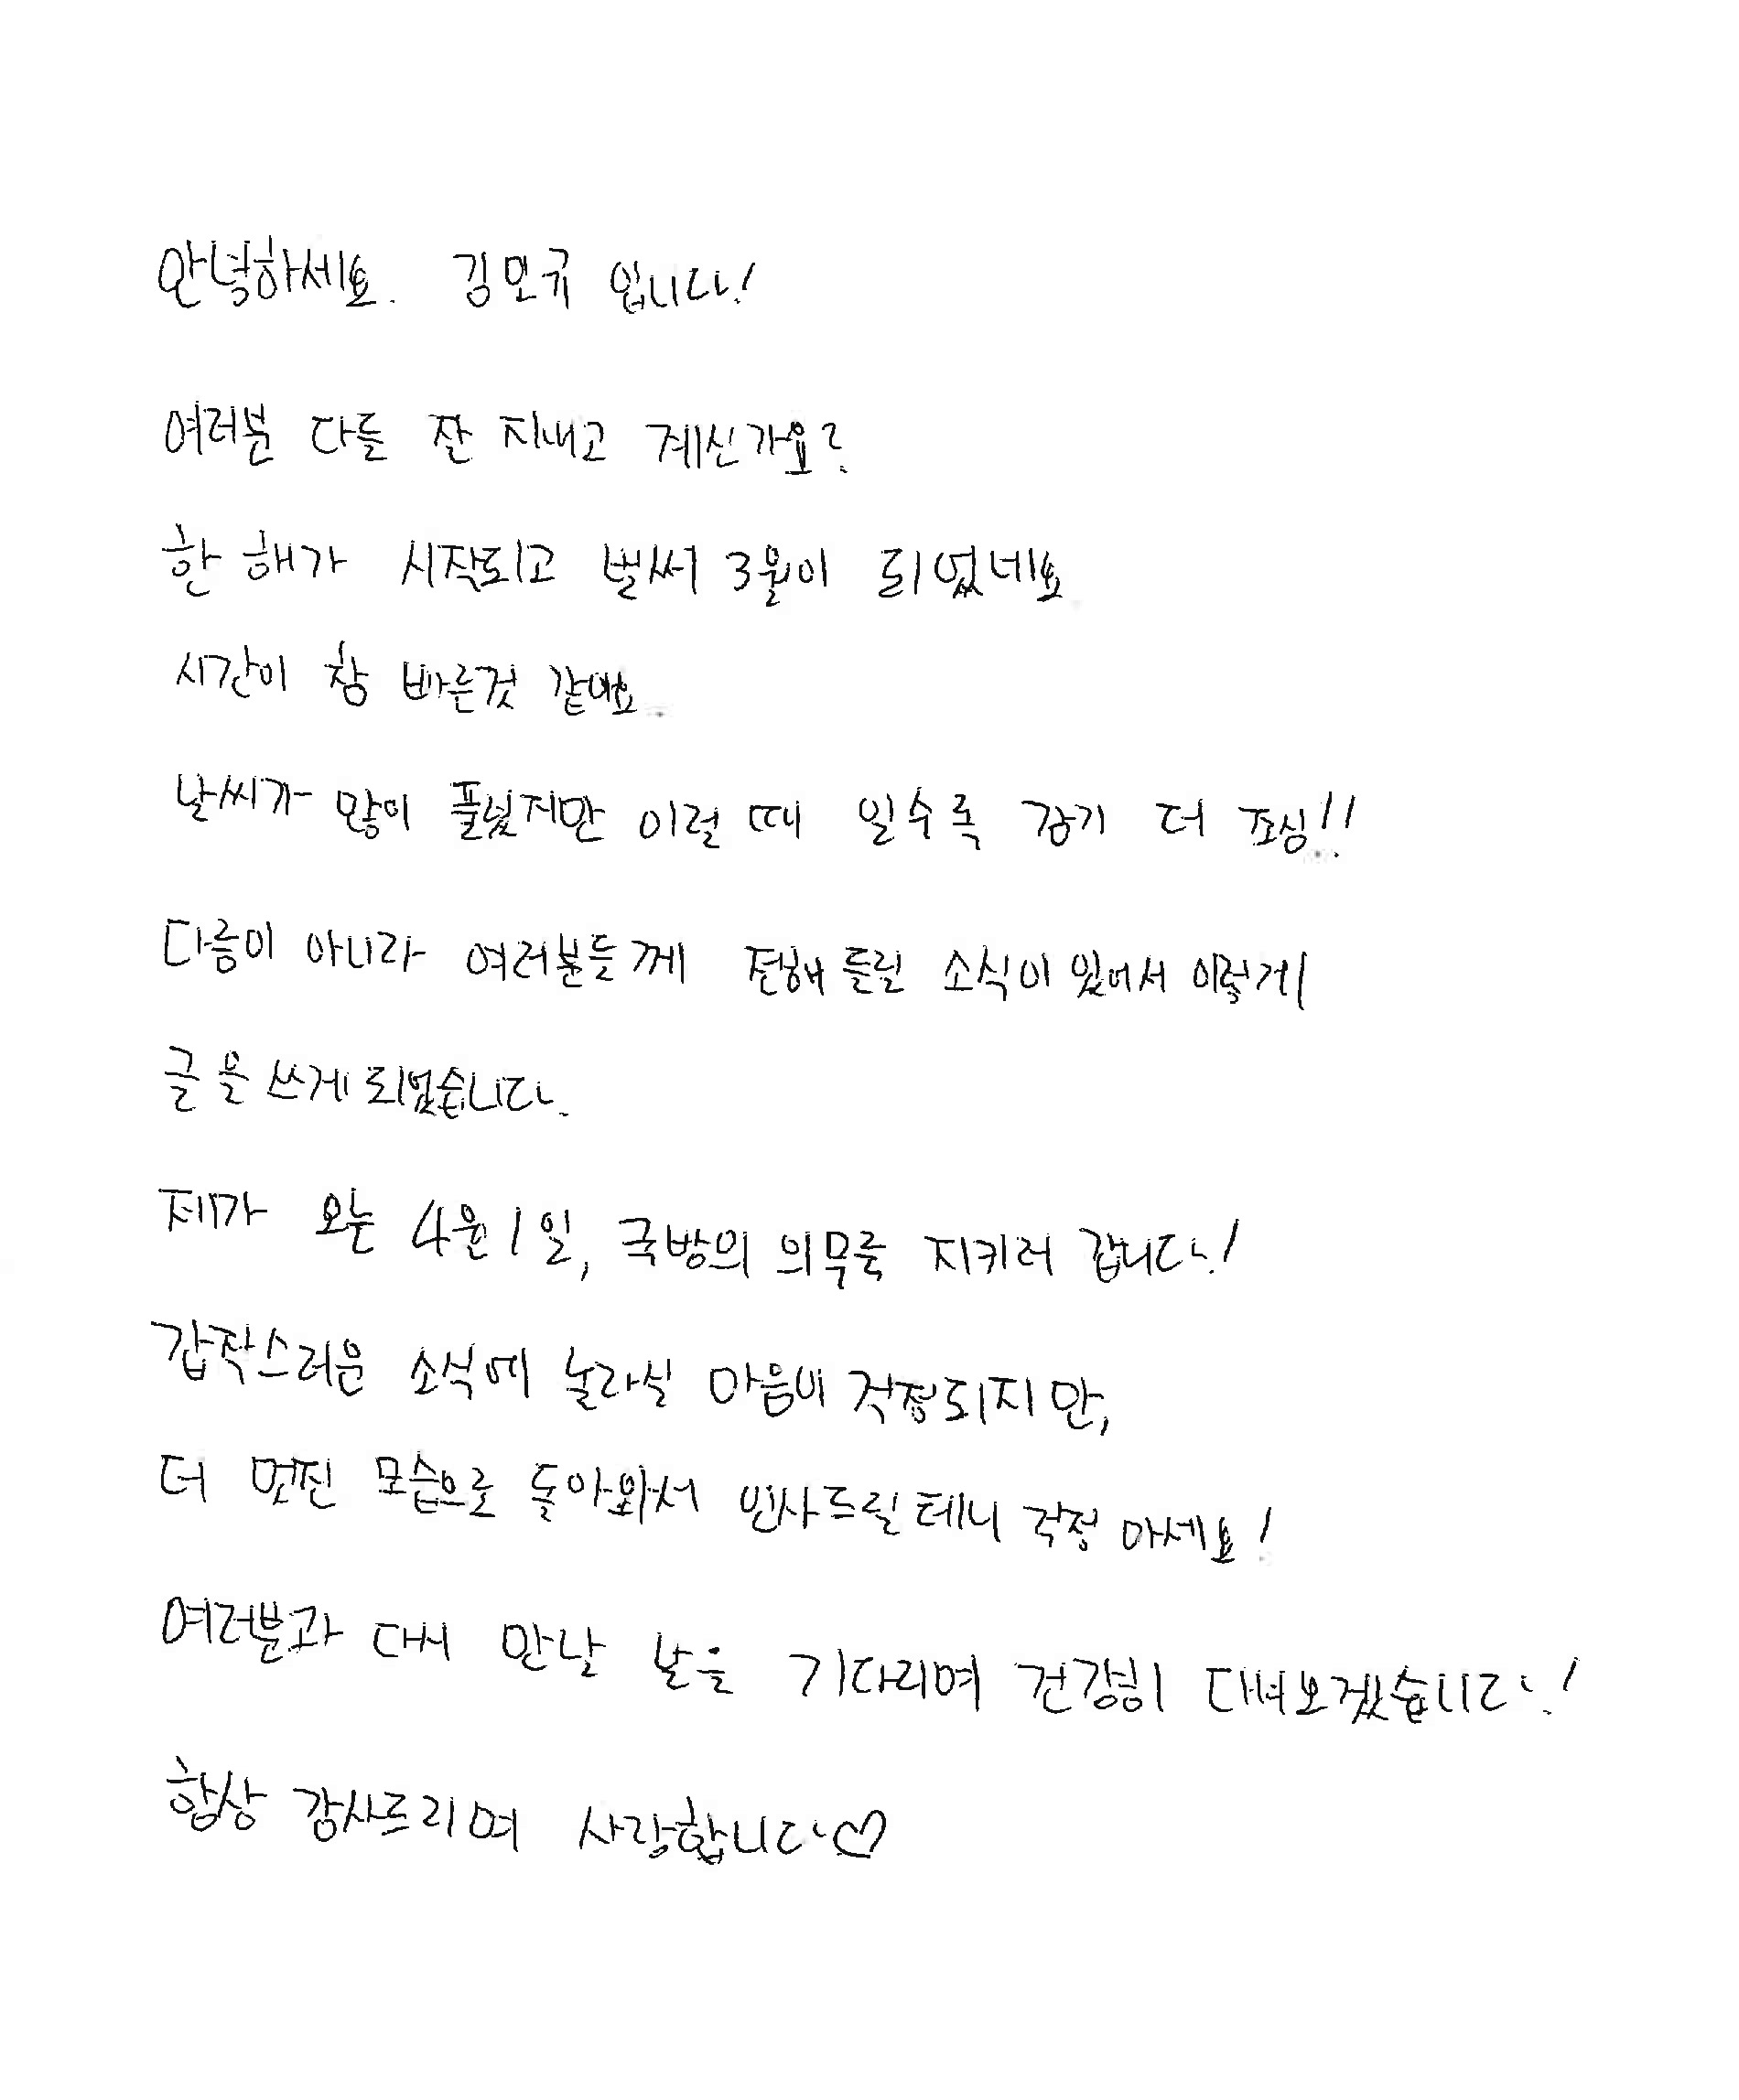 안녕하세요. 김민규 입니다!
여러분 다들 잘 지내고 계신가요?
한 해가 시작되고 벌써 3월이 되었네요
시간이 참 빠른것 같아요.
날씨가 많이 풀렸지만 이럴 때 일수록 감기 더 조심!!
다름이 아니라 여러분들께 전해 들릴 소식이 있어서 이렇게
글을 쓰게 되었습니다.
제가 오는 4월 1일, 국방의 의무를 지키러 갑니다!
갑작스러운 소식에 놀라실 마음이 걱정되지만,
더 멋진 모습으로 돌아와서 인사드릴테니 걱정 마세요!
여러분과 다시 만날 날을 기다리며 건강히 다녀오겠습니다!
항상 감사드리며 사랑합니다♡